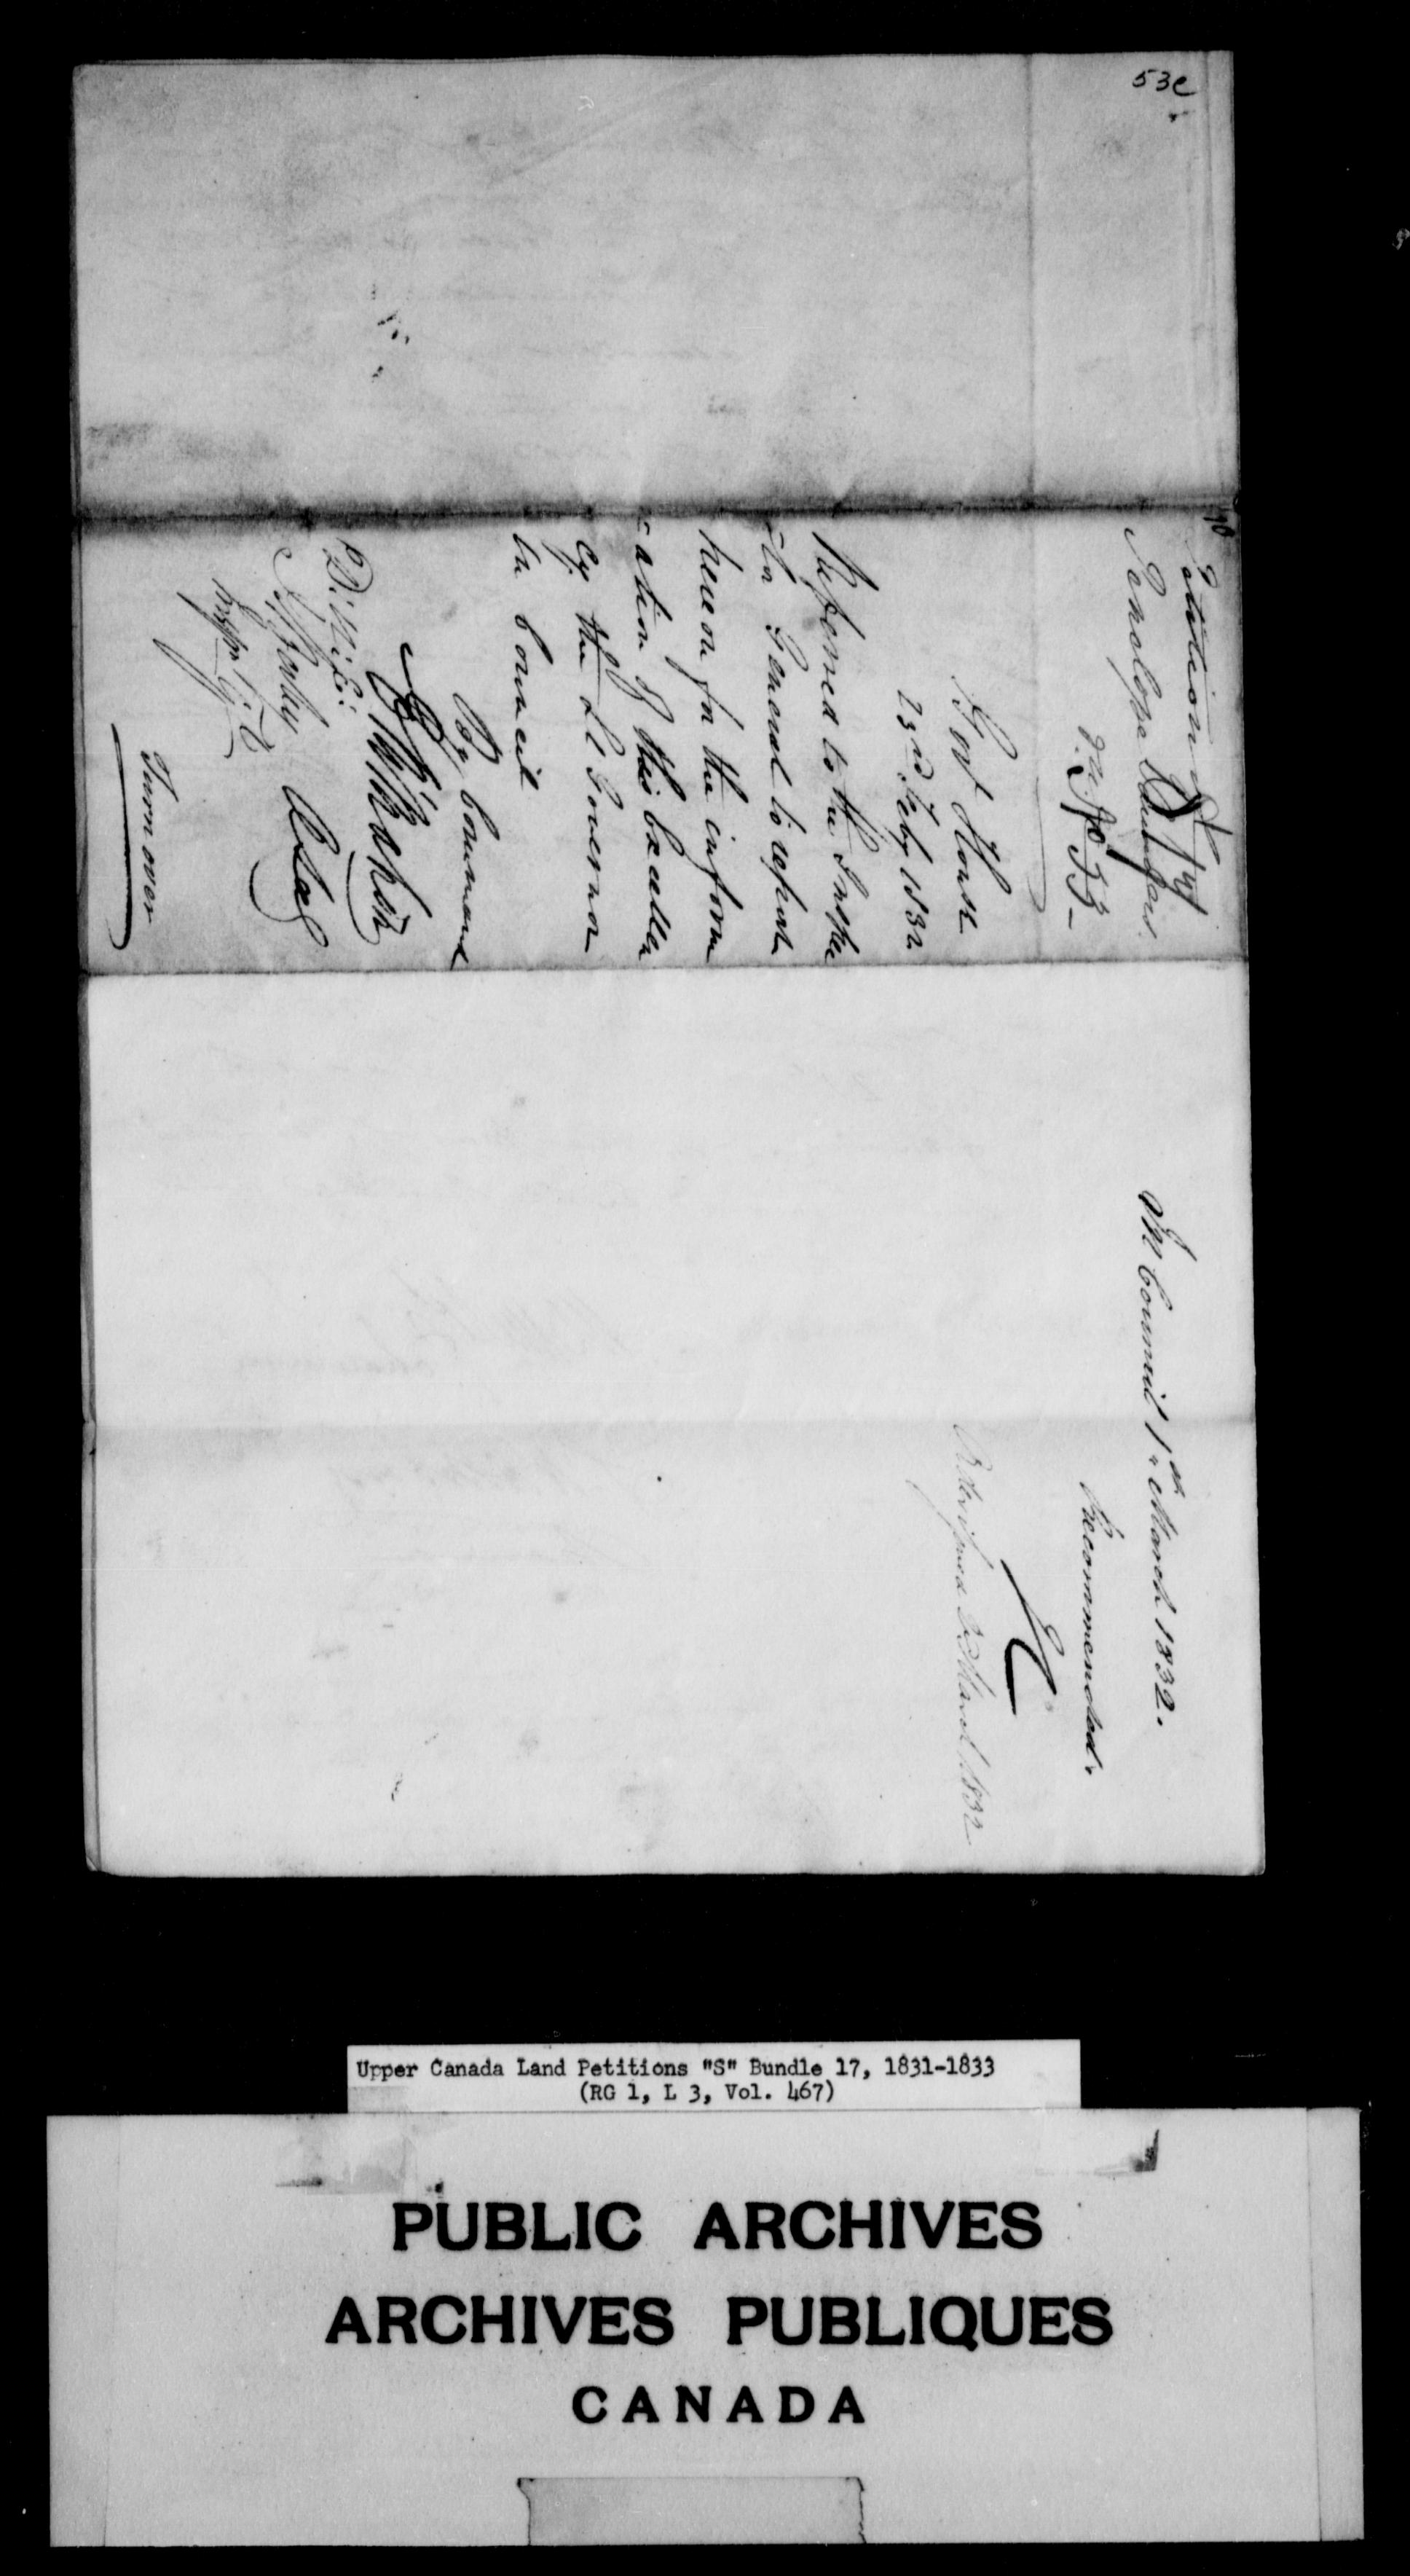 53e
Petition of
Penelope
No 53
Govt House
23rd Feby 1832
Referred to the Inspec
-tor General to report
hereon for the inform
-ation of His Excellen
cy the Lt Governor
in Council
By Command
Turn over
In Council 1st March 1832.
Recommended.
March 1832
Upper Canada Land Petitions "S" Bundle 17, 1831-1833
(RG 1, L 3, Vol. 467)
PUBLIC ARCHIVES
ARCHIVES PUBLIQUES
CANADA